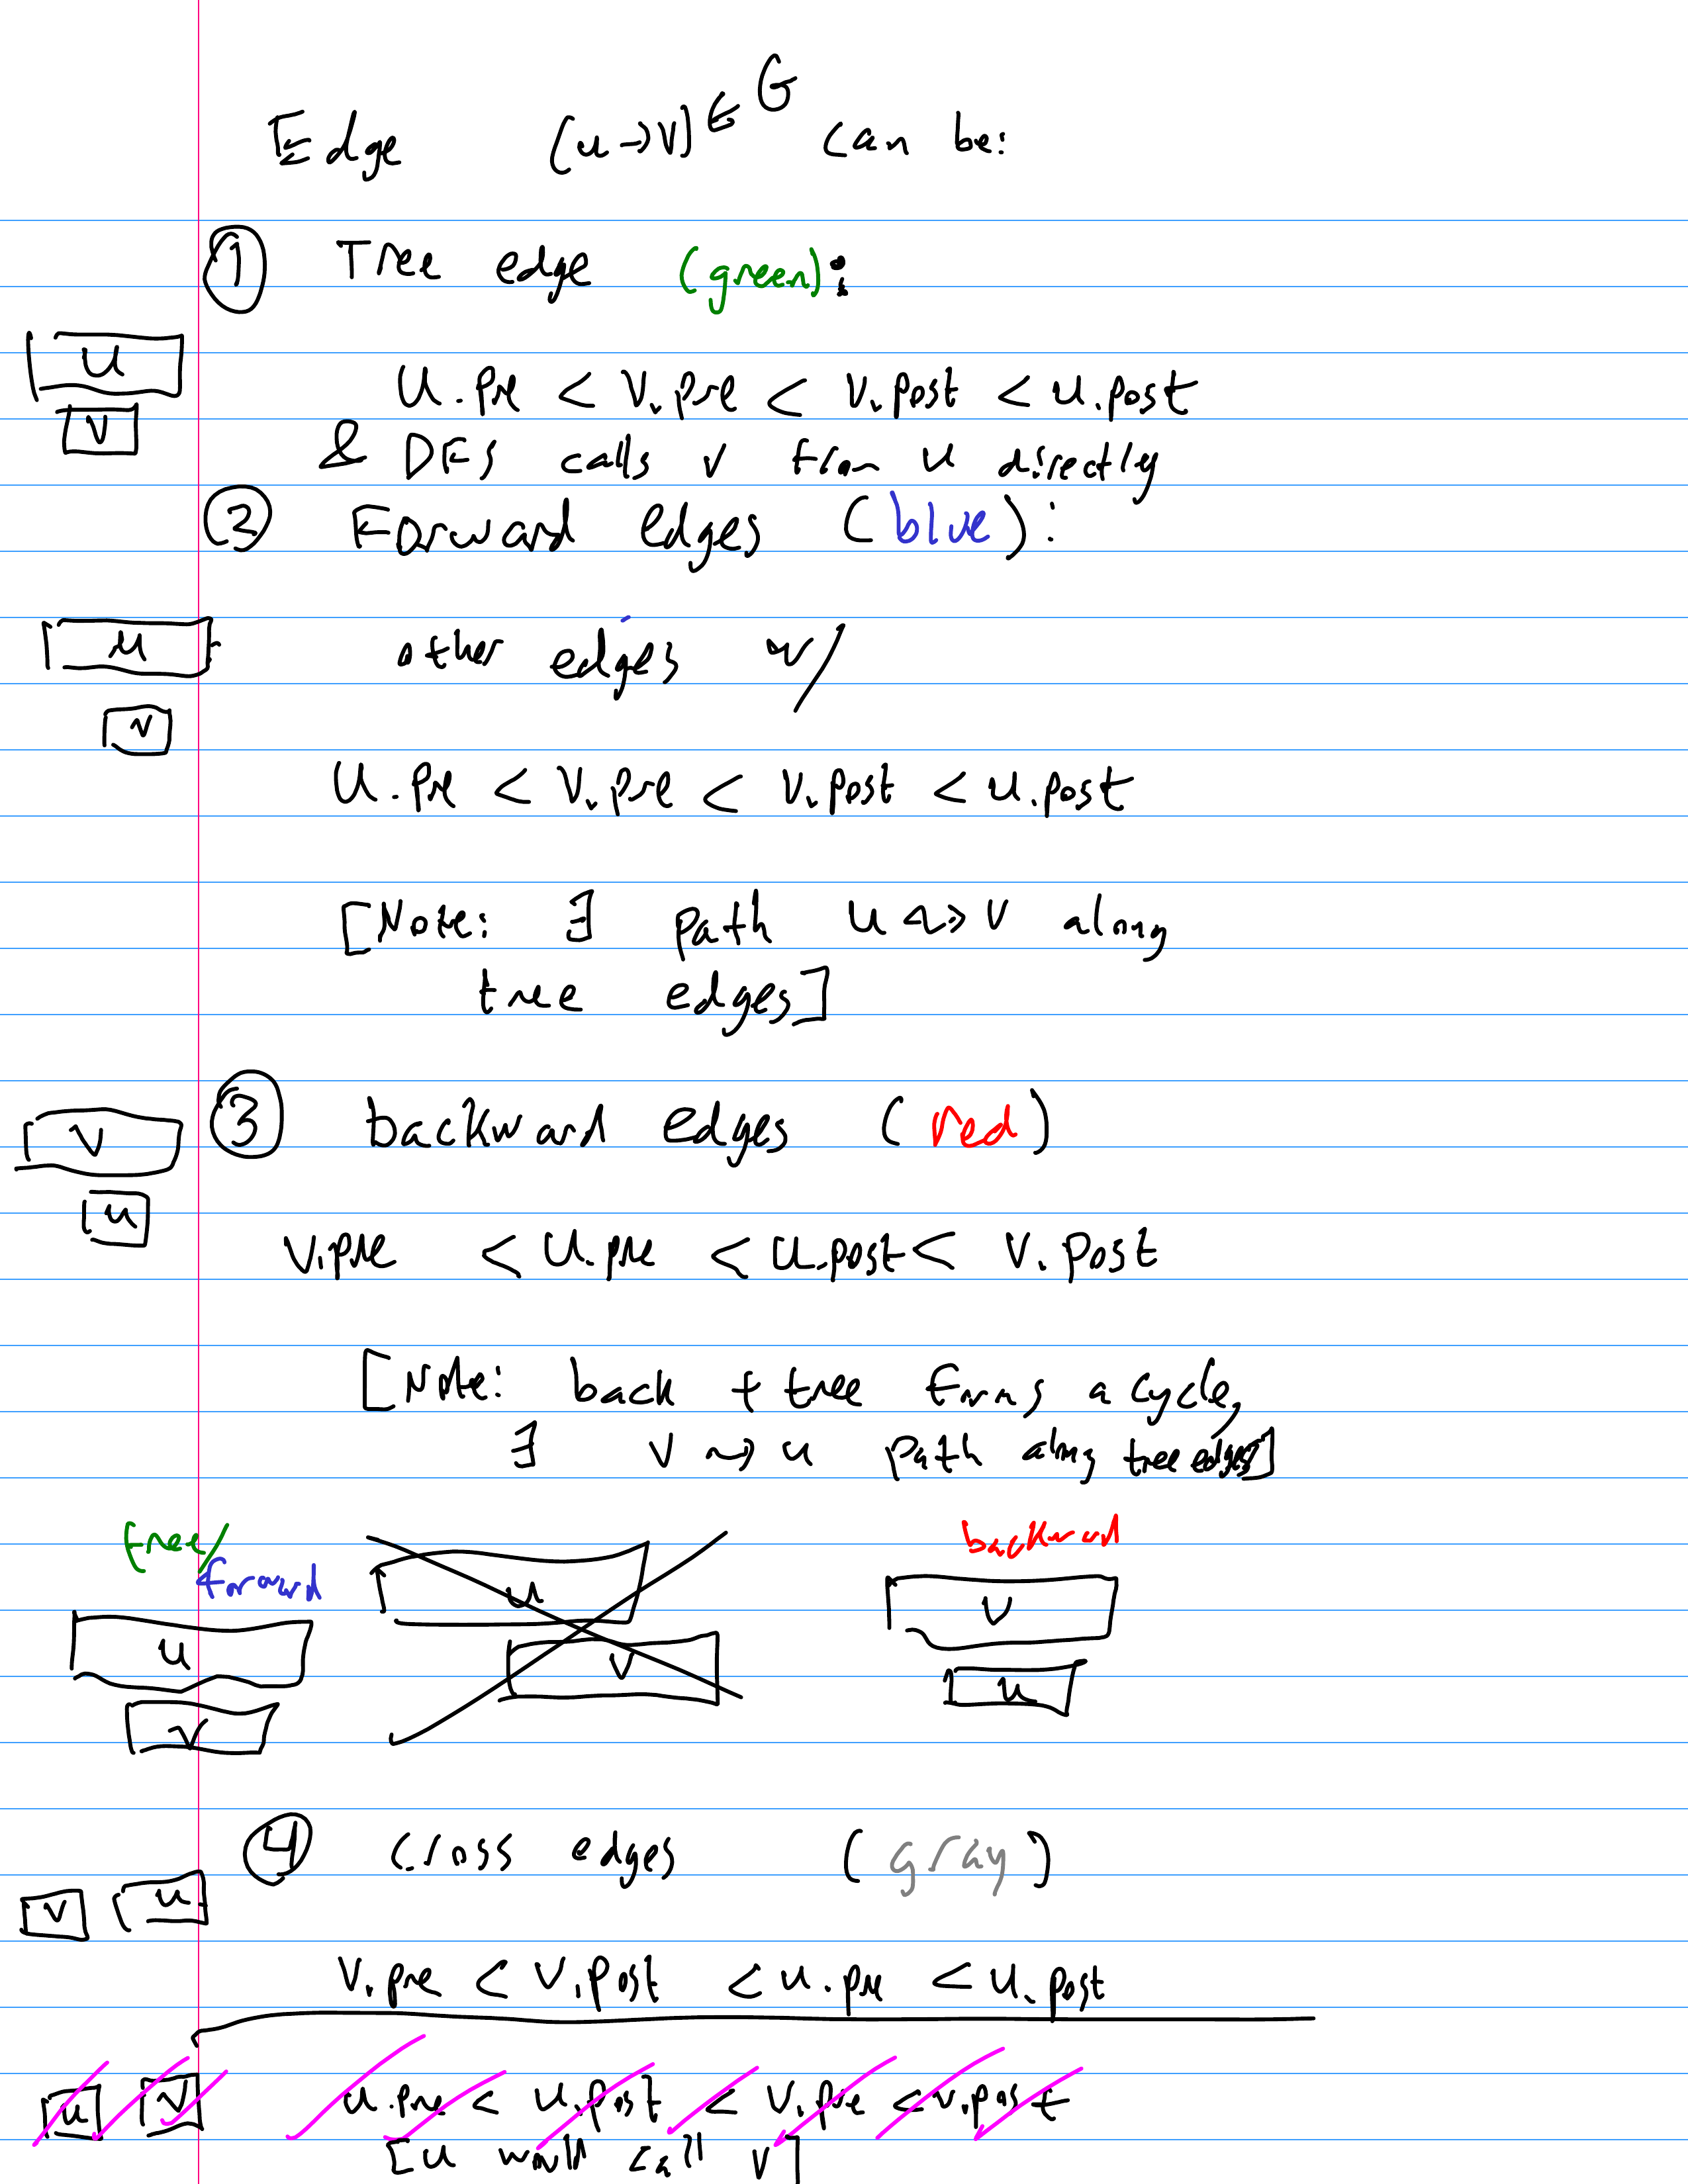 Edge (u→v) ∈ G can be:
① Tree edge (green):
u
v
u.pre < v.pre < v.post < u.post
& DFS calls v from u directly
② Forward edges (blue):
u
v
other edges w/
u.pre < v.pre < v.post < u.post
[Note: ∃ path u ⇝ v along
tree edges]
③ backward edges (red)
v
u
v.pre < u.pre < u.post < v.post
[Note: back + tree forms a cycle,
∃ v ⇝ u path along tree edges]
tree/
forward
u
v
u
v
backward
v
u
④ Cross edges (gray)
v u
v.pre < v.post < u.pre < u.post
u v
u.pre < u.post < v.pre < v.post
[u would call v]